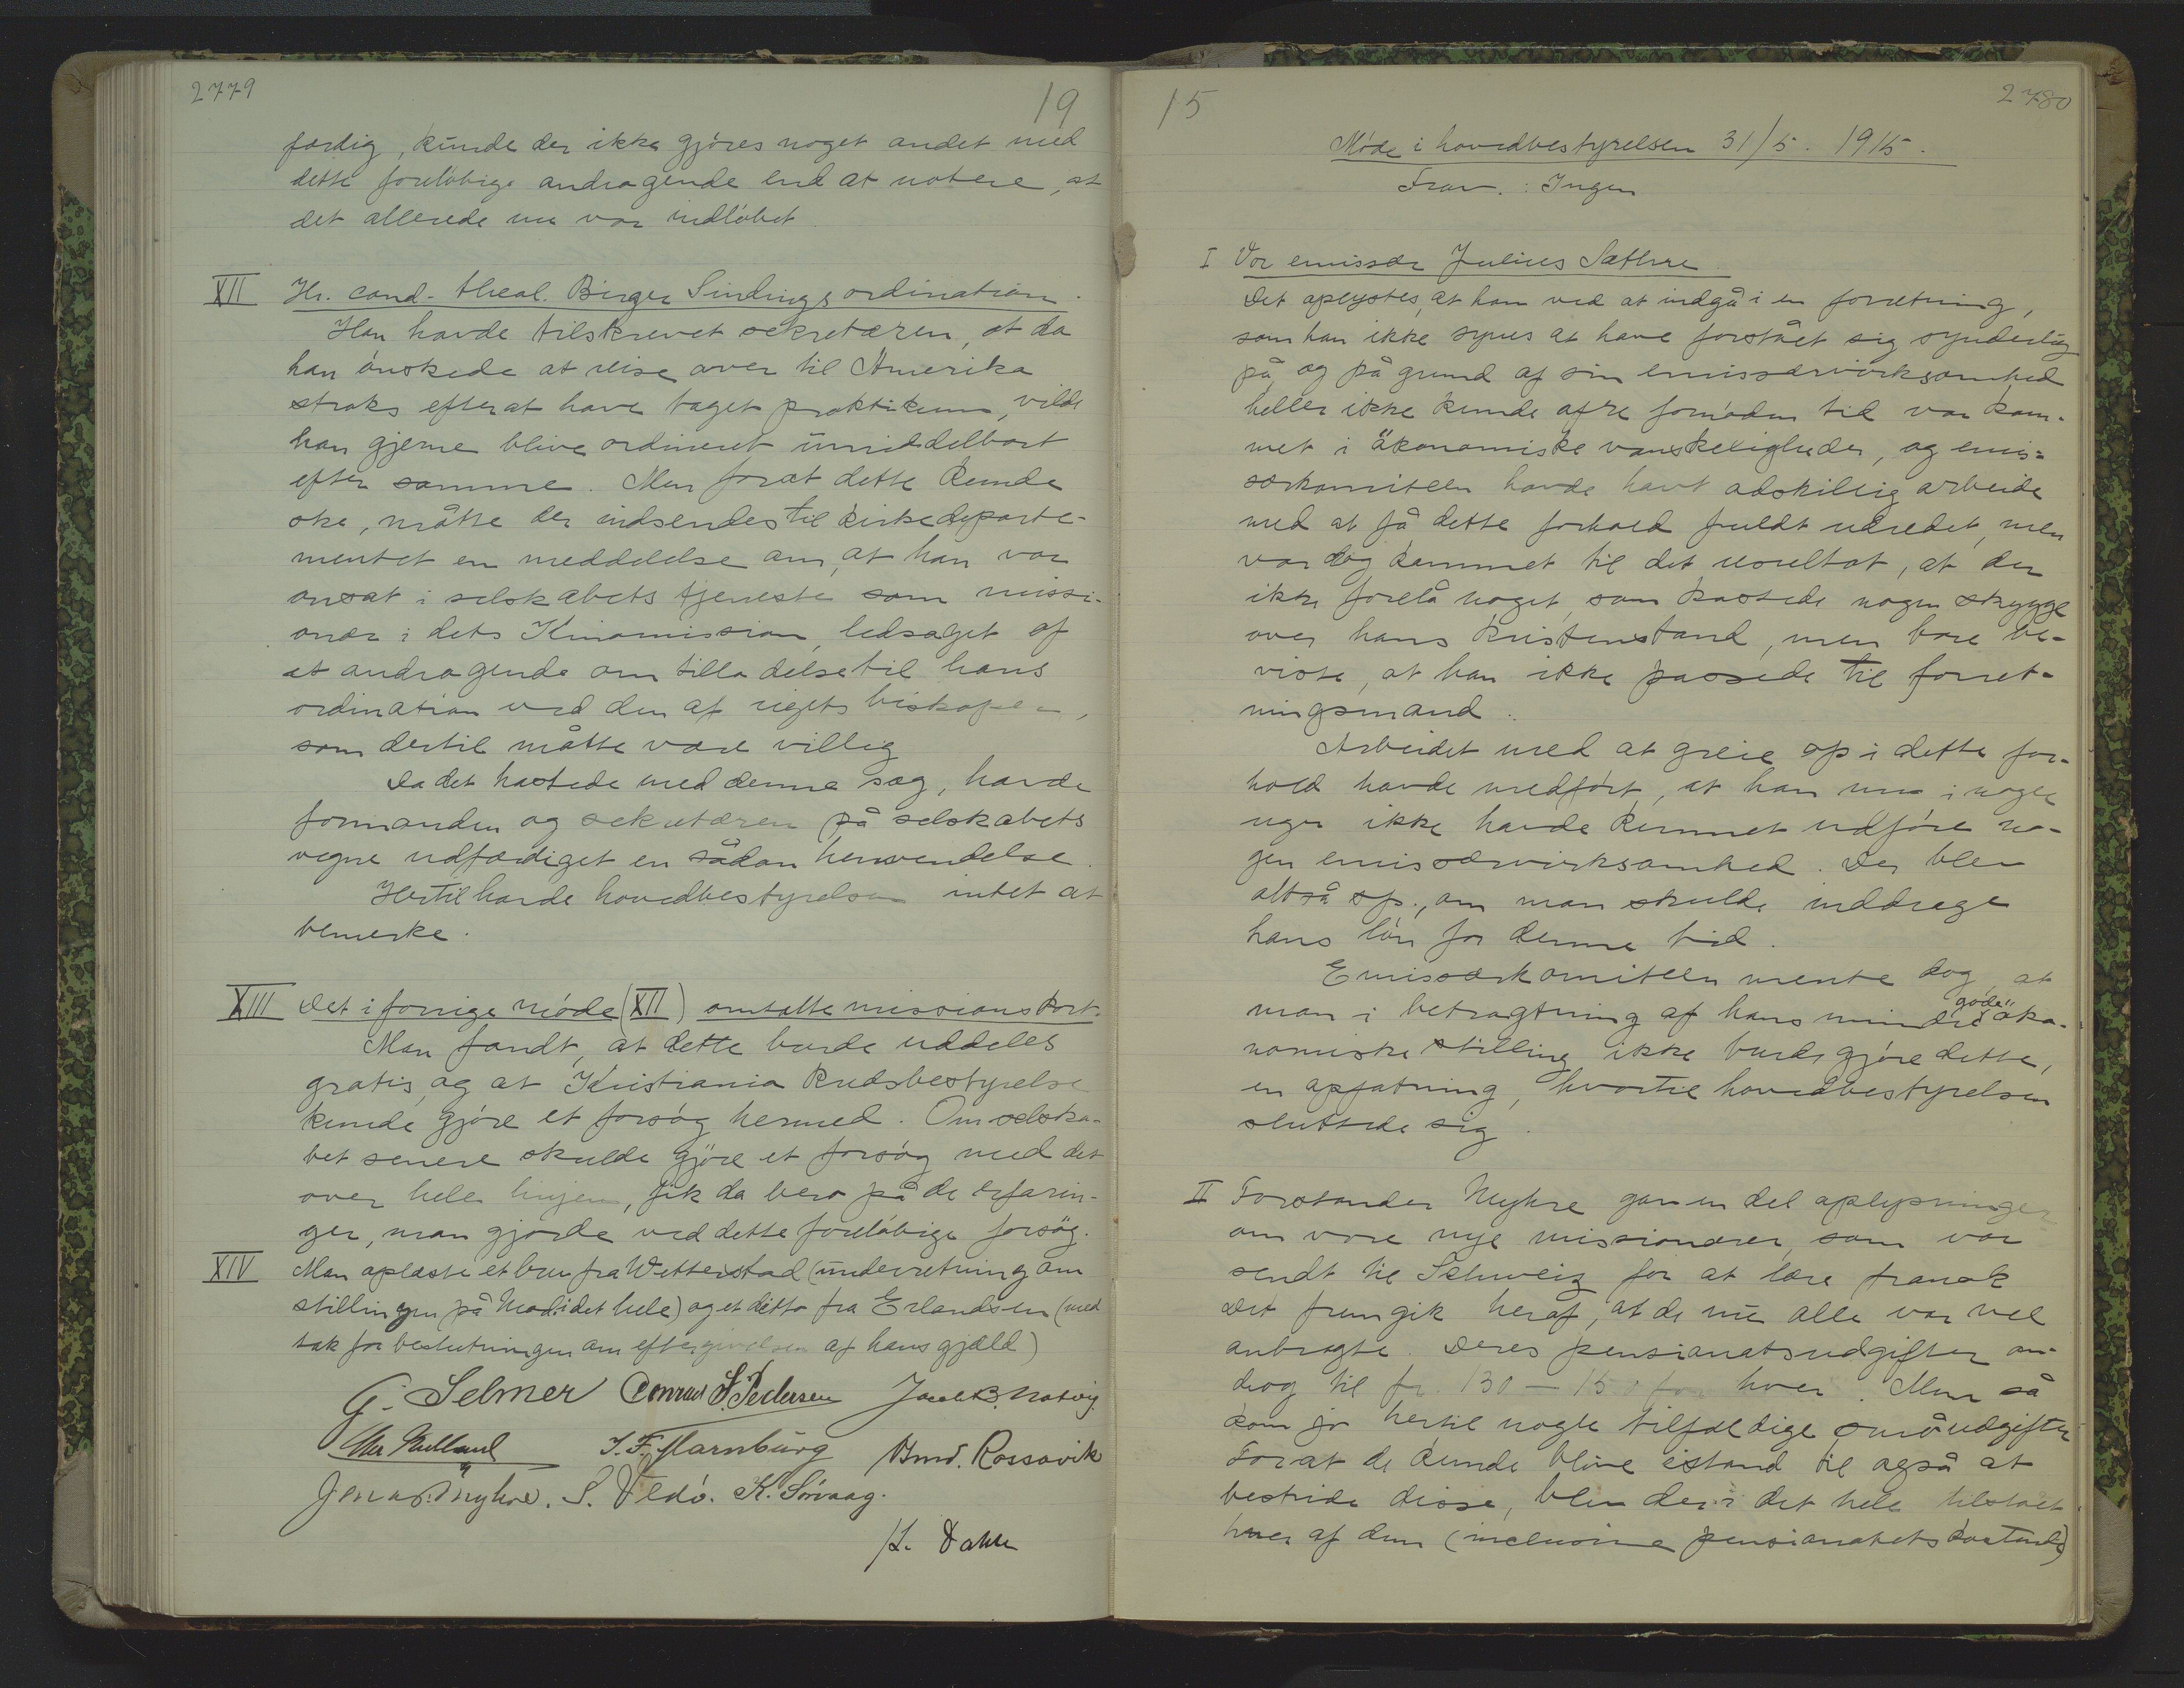 2779
19
færdig, kunde der ikke gjöres noget andet med
dette forelöbige andragende end at notere, at
det allerede nu var indlöbet.
XII Hr. cand. theol. Birger Sindings ordination.
Han havde tilskrevet sekretæren, at da
han önskede at reise over til Amerika
straks efter at have taget praktikum, vilde
han gjerne blive ordineret umiddelbart
efter samme. Men forat dette kunde
ske, måtte der indsendes til kirkedeparte-
mentet en meddelelse om, at han var
ansat i selskabets tjeneste som missi-
onær i dets Kinamission, ledsaget af
et andragende om tilladelse til hans
ordination ved den af rigets biskoper,
som dertil måtte være villig
Da det hastede med denne sag, havde
formanden og sekretæren på selskabets
vegne udfærdiget en sådan henvendelse.
Hertil havde hovedbestyrelsen intet at
bemerke.
XIII Det i forrige möde (XII) omtalte missionskort.
Man fandt, at dette burde uddeles
gratis, og at Kristiania kredsbestyrelse
kunde gjöre et forsög hermed. Om selska-
bet senere skulde gjöre et forsög med det
over hele linjen, fik da bero på de erfarin-
ger, man gjorde ved dette forelöbige forsög.
XIV Man oplæste et brev fra Wetterstad (underretning om
stillingen på Mad. i det hele) og et ditto fra Erlandsen (med
tak for beslutningen om eftergivelsen af hans gjæld)
G. Selmer Conrad S. Pedersen Jacob B. Natvig.
J. F. Marnburg Bmd. Rossavik
Jonas Nyhre. S. Vedö. K. Sörvaag.
L. Dahle
15
2780
Möde i hovedbestyrelsen 31/5. 1915.
Frav. : Ingen
I Vor emissær Julius Sæthre.
Det oplystes, at han ved at indgå i en forretning,
som han ikke synes at have forstået sig synderlig
på og på grund af sin emissærvirksomhed
heller ikke kunde ofre fornöden tid var kom-
met i ökonomiske vanskeligheder, og emis-
særkomiteen havde havt adskillig arbeide
med at få dette forhold fuldt udredet, men
var dog kommet til det resultat, at der
ikke forelå noget, som kastede nogen skygge
over hans kristenstand, men bare be-
viste, at han ikke passede til forret-
ningsmand.
Arbeidet med at greie op i dette for-
hold havde medfört, at han nu i nogle
uger ikke havde kunnet udföre no-
gen emissærvirksomhed. Der blev
altså sp., om man skulde inddrage
hans lön for denne tid.
Emissærkomiteen mente dog, at
man i betragtning af hans mindre gode öko-
nomiske stilling ikke burde gjöre dette,
en opfatning, hvortil hovedbestyrelsen
sluttede sig.
II Forstander Nyhre gav en del oplysninger
om vore nye missionærer, som var
sendt til Schweiz for at lære fransk
Det fremgik heraf, at de nu alle var vel
anbragte. Deres pensionatsudgifter an-
drog til fr. 130 – 150 for hver. Men så
kom jo hertil nogle tilfældige småudgifter
Forat de kunde blive istand til også at
bestride disse, blev der i det hele tilstået
hver af dem (inclusive pensionatets kostende)